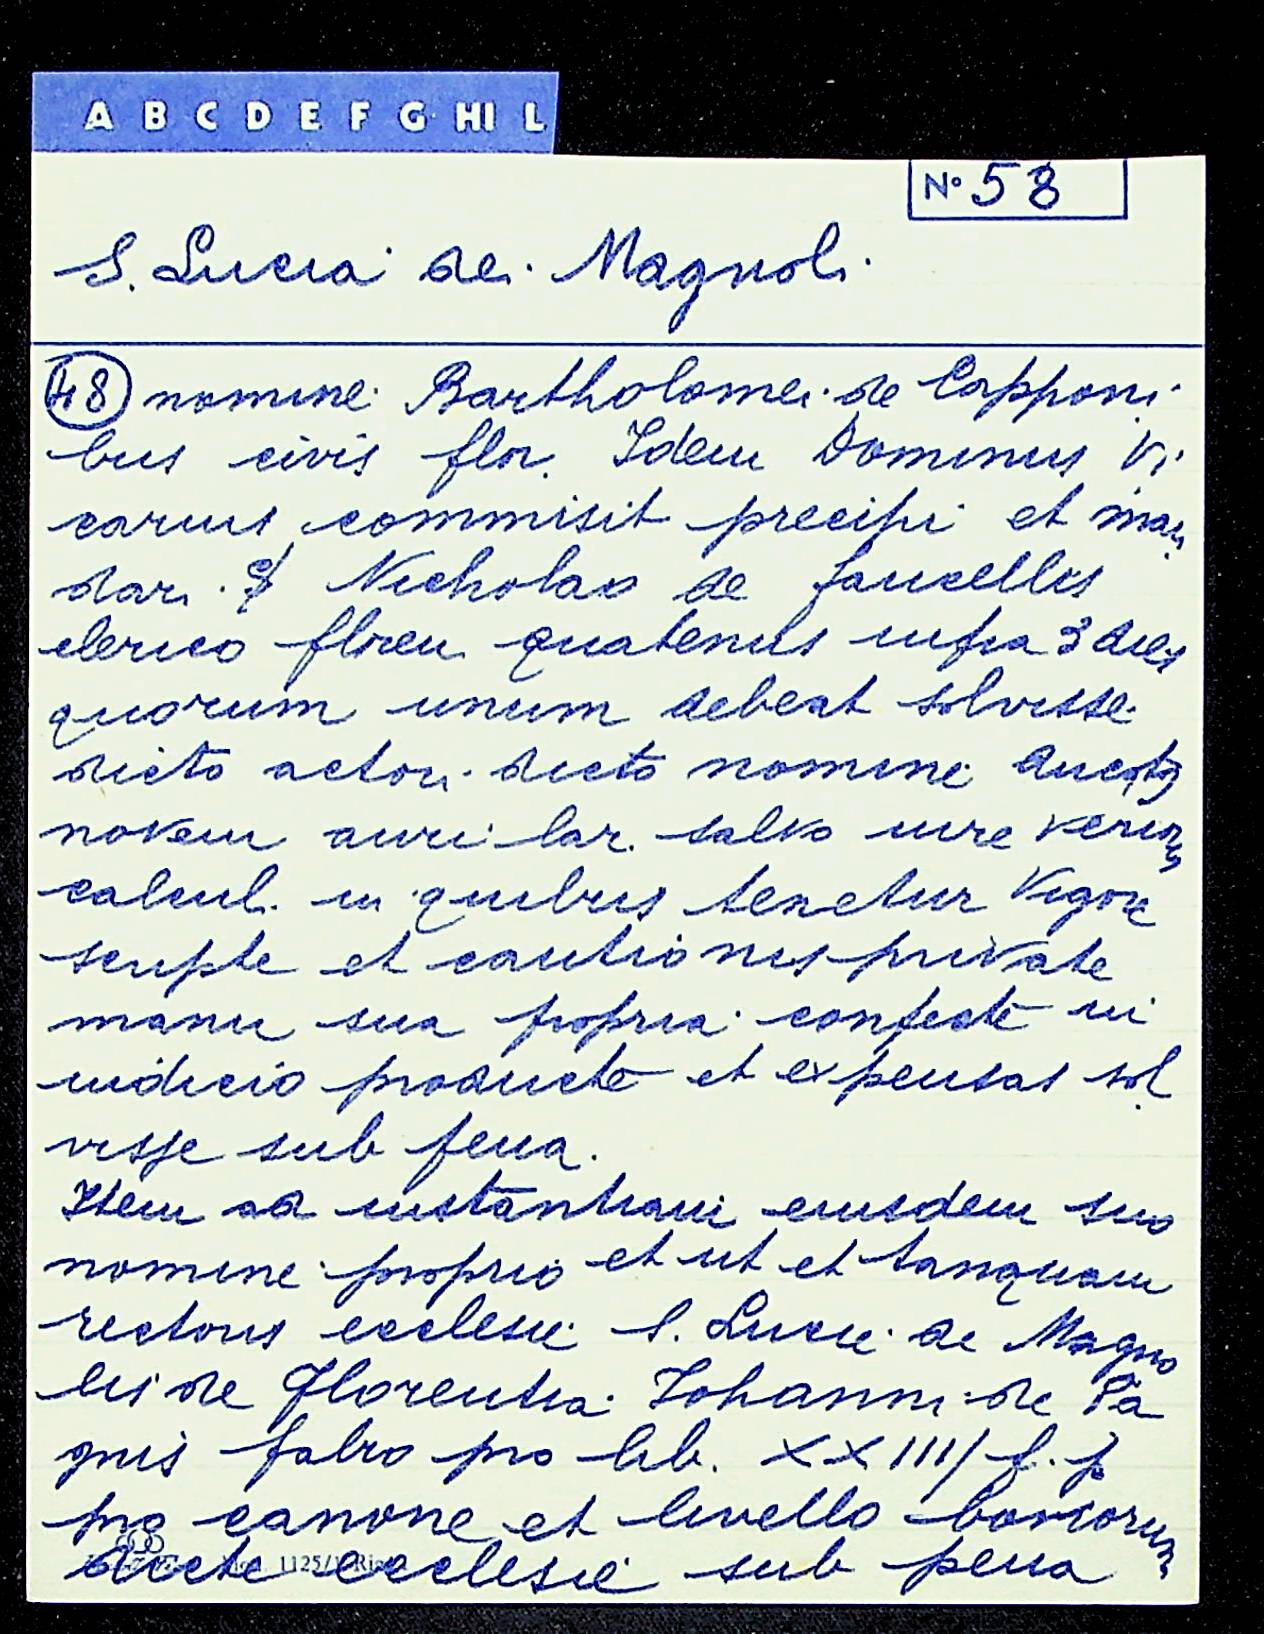 A B C D E F G HI L
N° 58
S. Lucia dei Magnoli
48 nomine Bartholomei de Capponi
bus civis flor. Idem Dominus Vi
carius commisit precipi et man
dari Nicholao de faucellis
clerico floren quatenus infra 3 dies
quorum unum debeat solvisse
dicto actori dicto nomine ducatos
novem auri lar. salvo iure verioris
calculi in quibus tenetur vigore
scripte et cautionis private
manu sua propria confecte in
iudicio producte et expensas sol
visse sub pena.
Item ad instantiam eiusdem suo
nomine proprio et ut et tanquam
rectoris ecclesie S. Lucie de Magno
lis de Florentia Iohanni de Pa
gnis fabro pro lib. XXIII/ f. p
pro canone et livello bonorum
dicte ecclesie sub pena
1125/1